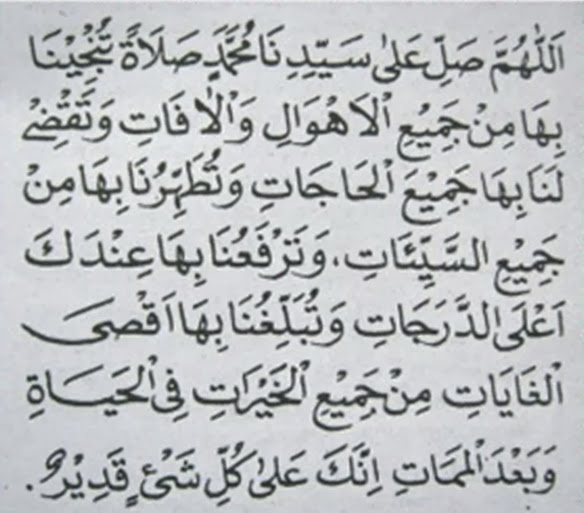 اَللّٰهُمَّ صَلِّ عَلٰى سَيِّدِنَا مُحَمَّدٍ صَلَاةً تُنْجِيْنَا
بِهَا مِنْ جَمِيْعِ الْاَهْوَالِ وَالْاٰفَاتِ وَتَقْضِيْ
لَنَا بِهَا جَمِيْعَ الْحَاجَاتِ وَتُطَهِّرُنَا بِهَا مِنْ
جَمِيْعِ السَّيِّئَاتِ، وَتَرْفَعُنَا بِهَا عِنْدَكَ
اَعْلَى الدَّرَجَاتِ وَتُبَلِّغُنَا بِهَا اَقْصَى
الْغَايَاتِ مِنْ جَمِيْعِ الْخَيْرَاتِ فِى الْحَيَاةِ
وَبَعْدَ الْمَمَاتِ اِنَّكَ عَلٰى كُلِّ شَىْءٍ قَدِيْرٌ.